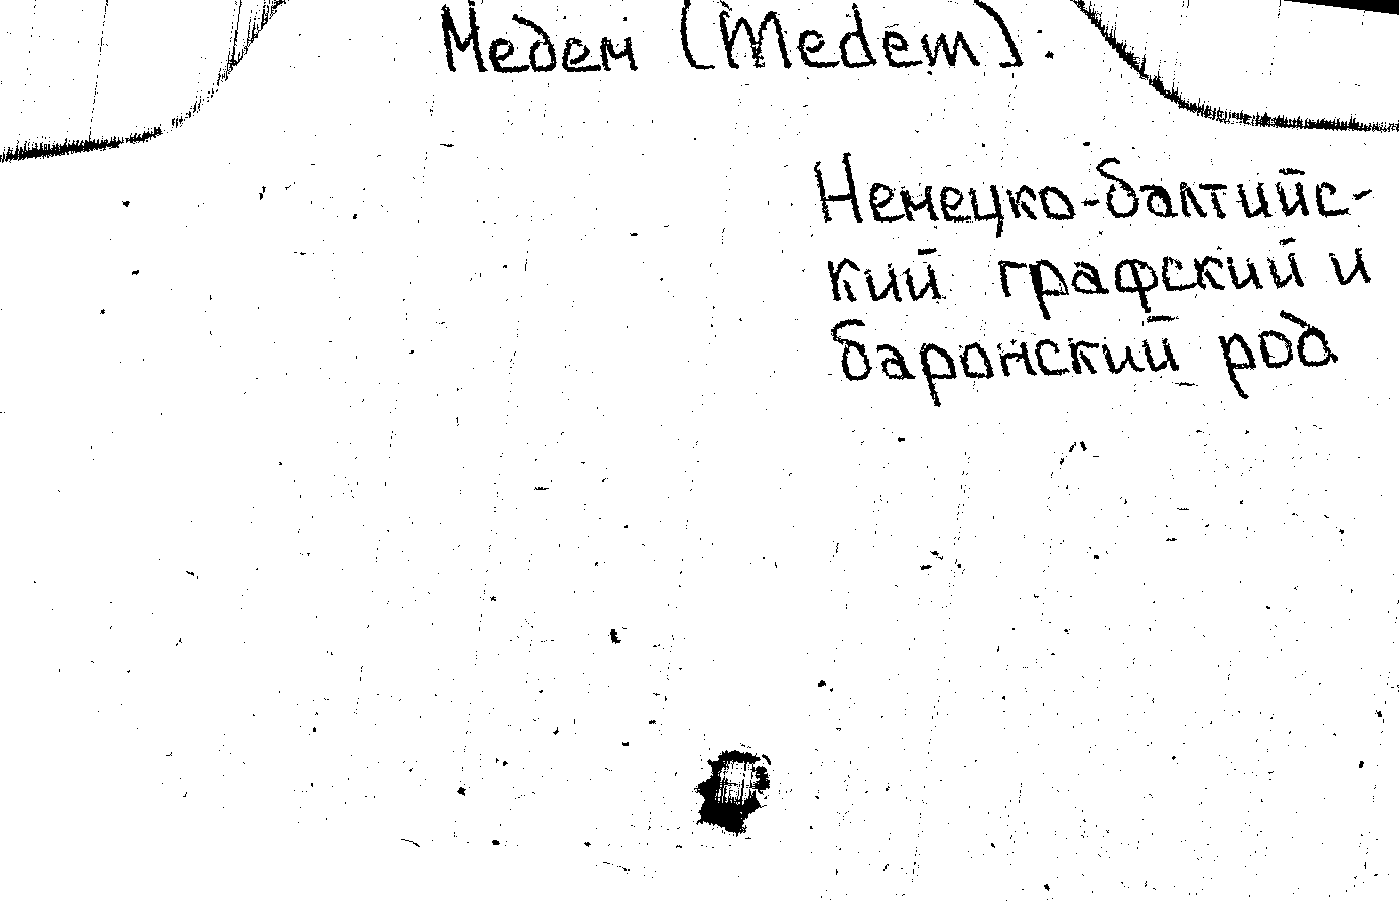 Медем (Medem).
Немецко-балтийс-
кий графский и
баронский род